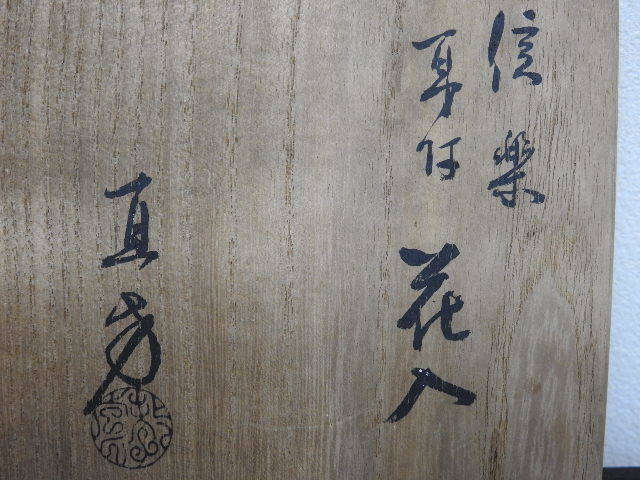 信楽
耳付 花入
直方